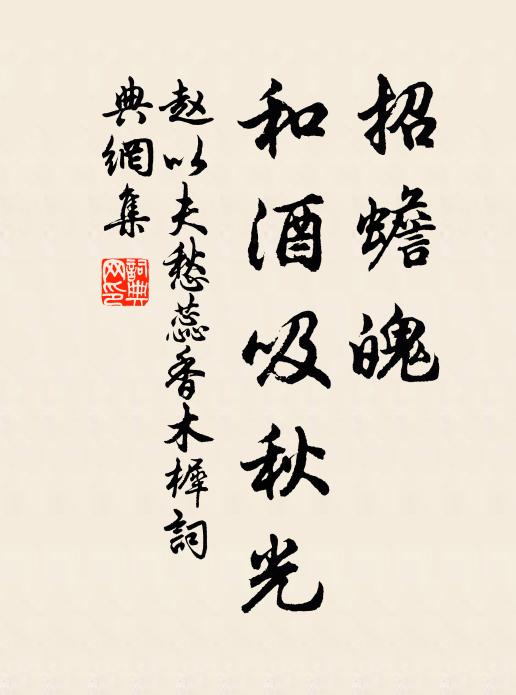 招蟾魄
和酒吸秋光
赵以夫愁蕊香木樨詞
典網集
詞典
网印